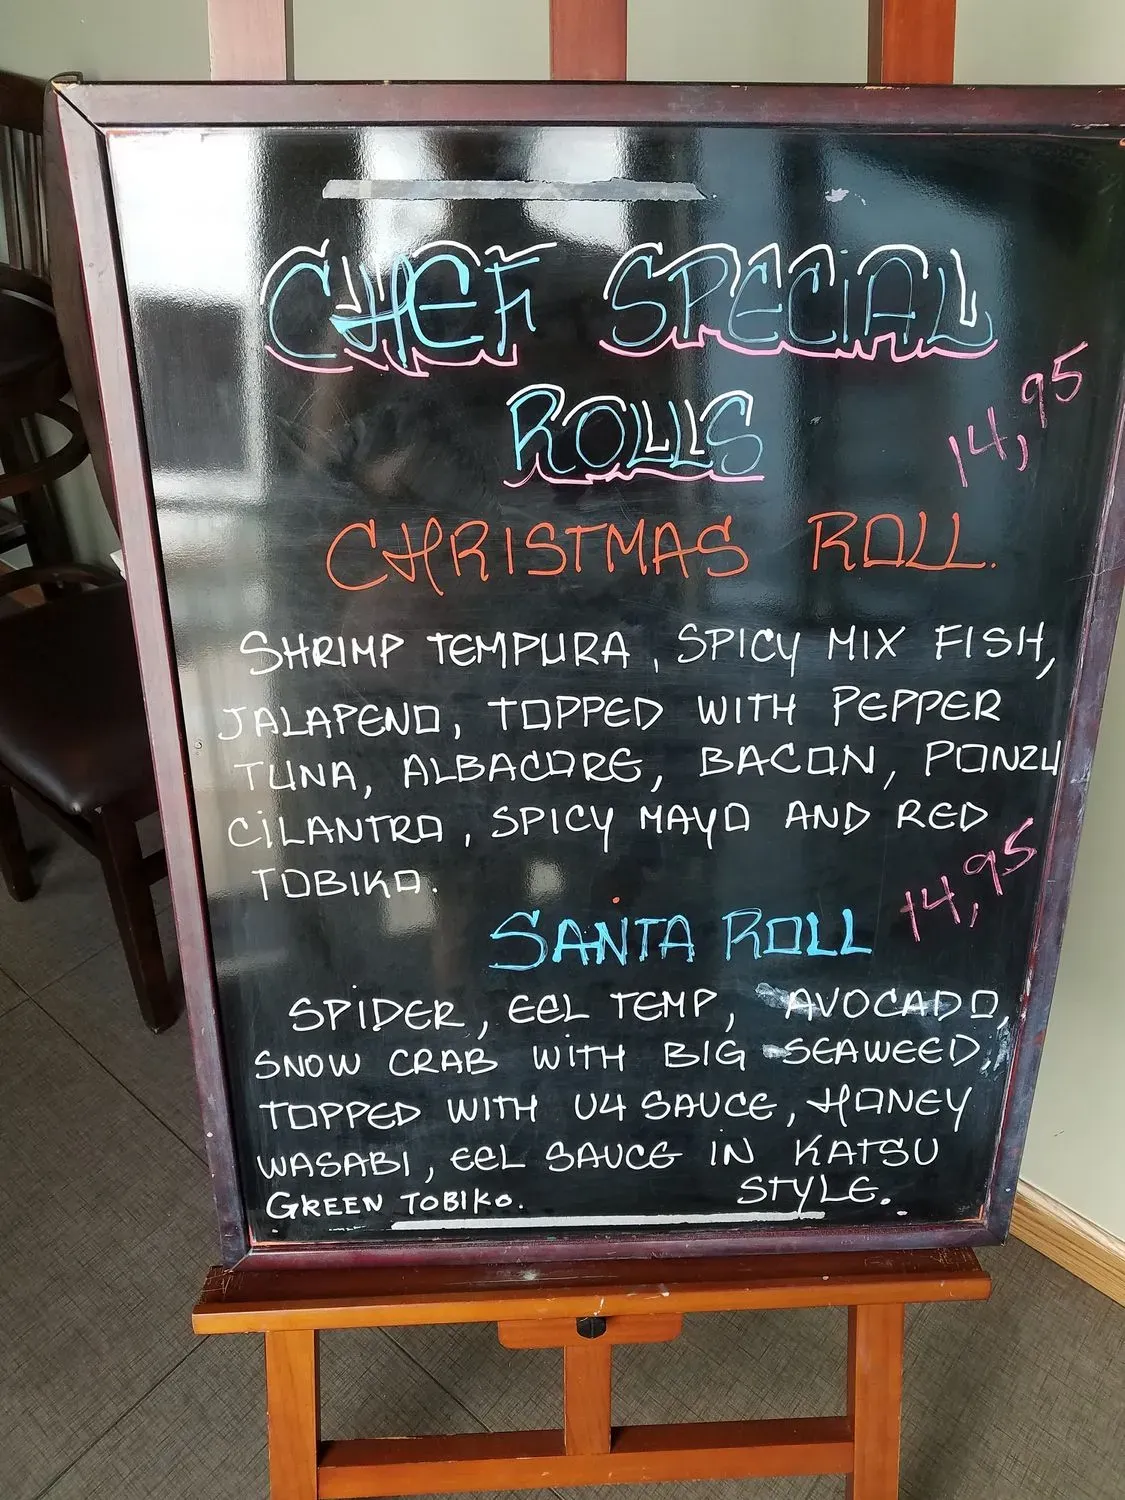 CHEF SPECiAL
ROLLS
14,95
CHRISTMAS ROLL.
SHRIMP TEMPURA, SPICY MIX FISH,
JALAPENO, TOPPED WITH PEPPER
TUNA, ALBACORE, BACON, PONZU
CiLANTRO, SPICY MAYO AND RED
TOBIKO.
14,95
SANTA ROLL
SPIDER, EEL TEMP, AVOCADO,
SNOW CRAB WITH BIG SEAWEED,
TOPPED WITH U4 SAUCE, HONEY
WASABI, EEL SAUCE IN KATSU
GREEN TOBIKO. STYLE.